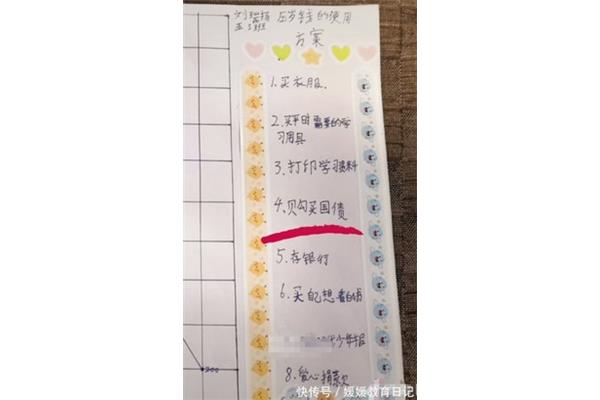 压岁钱的使用
方案
1.买衣服.
2.买平时需要的学
习用具
3.打印学习资料
4.购买国债
5.存银行
6.买自己想看的书
少年报
8.爱心捐款
300
快传号/媛媛教育日记